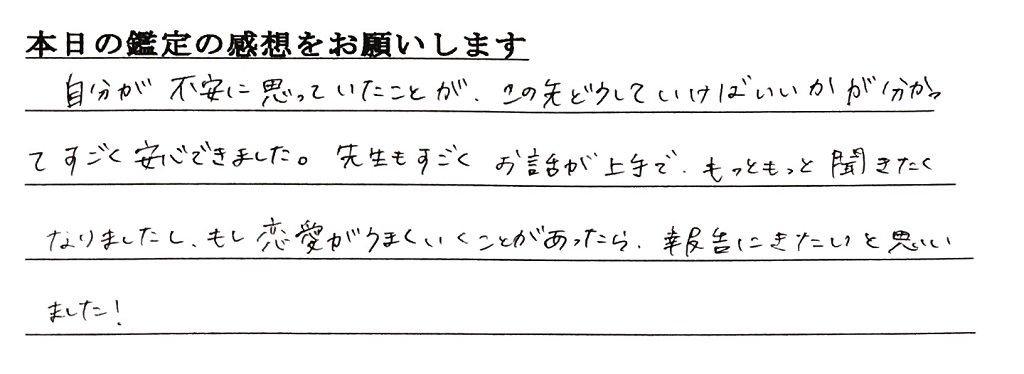 本日の鑑定の感想をお願いします
自分が不安に思っていたことが、この先どうしていけばいいかが分かっ
てすごく安心できました。先生もすごくお話が上手で、もっともっと聞きたく
なりましたし、もし恋愛がうまくいくことがあったら、報告にきたいと思い
ました!